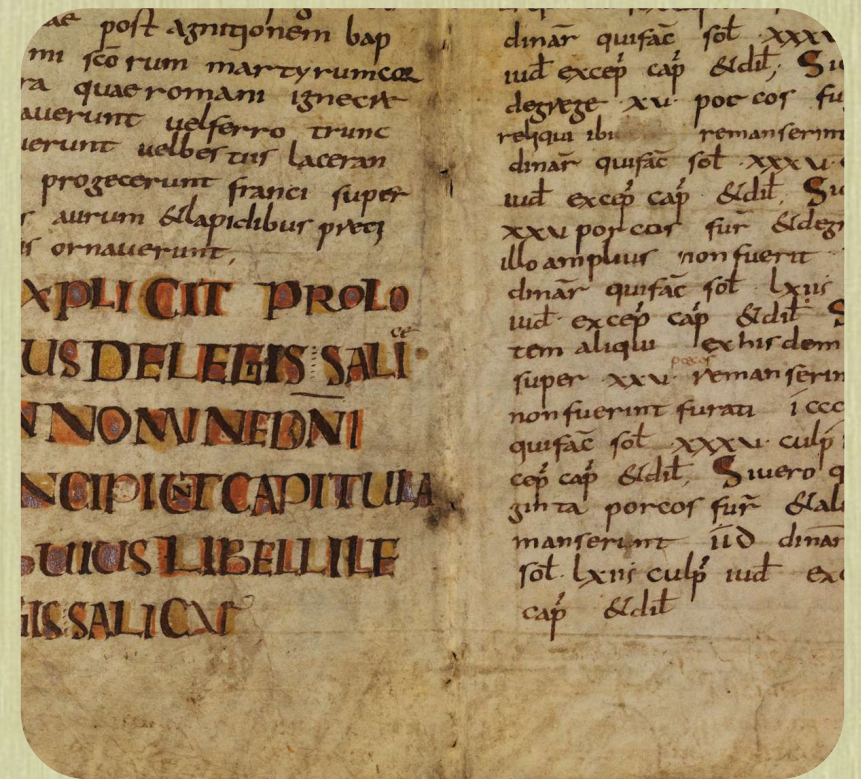 ae post agnitionem bap
mi scōrum martyrum cor
ra quae romani igne cre
averunt vel ferro trunc
verunt vel bestiis laceran
progecerunt franci super
aurum & lapidibus preti
s ornaverunt.
XPLICIT PROLO
US DE LEGIS SALI ce
N NOMINE DNI
NCIPIUNT CAPITULA
UIUS LIBELLI LE
GIS SALICAE
dinar̄ qui fac̄ sol̄ xxxv
iud̄ excep̄ cap̄ & dil̄, Si
de grege xv porcos fu
reliqui ibi remanserint
dinar̄ qui fac̄ sol̄ xxxv
iud̄ excep̄ cap̄ & dil̄, Si
xxv porcos fur̄ & degr
illo amplius non fuerit
dinar̄ qui fac̄ sol̄ lxiis
iud̄ excep̄ cap̄ & dil̄ S
tem aliqui ex hisdem
super xxv porcos remanserin
non fuerint furati iccc
qui fac̄ sol̄ xxxv culp̄
cep̄ cap̄ & dil̄, Si vero q
ginta porcos fur̄ & ali
manserint iid dinar̄
sol̄ lxiis culp̄ iud̄ ex
cap̄ & dil̄